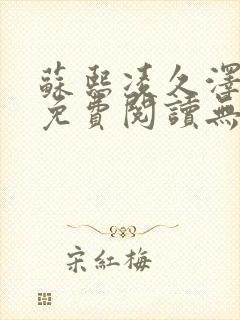 蘇熙凌久澤
免費閱讀無
宋紅梅